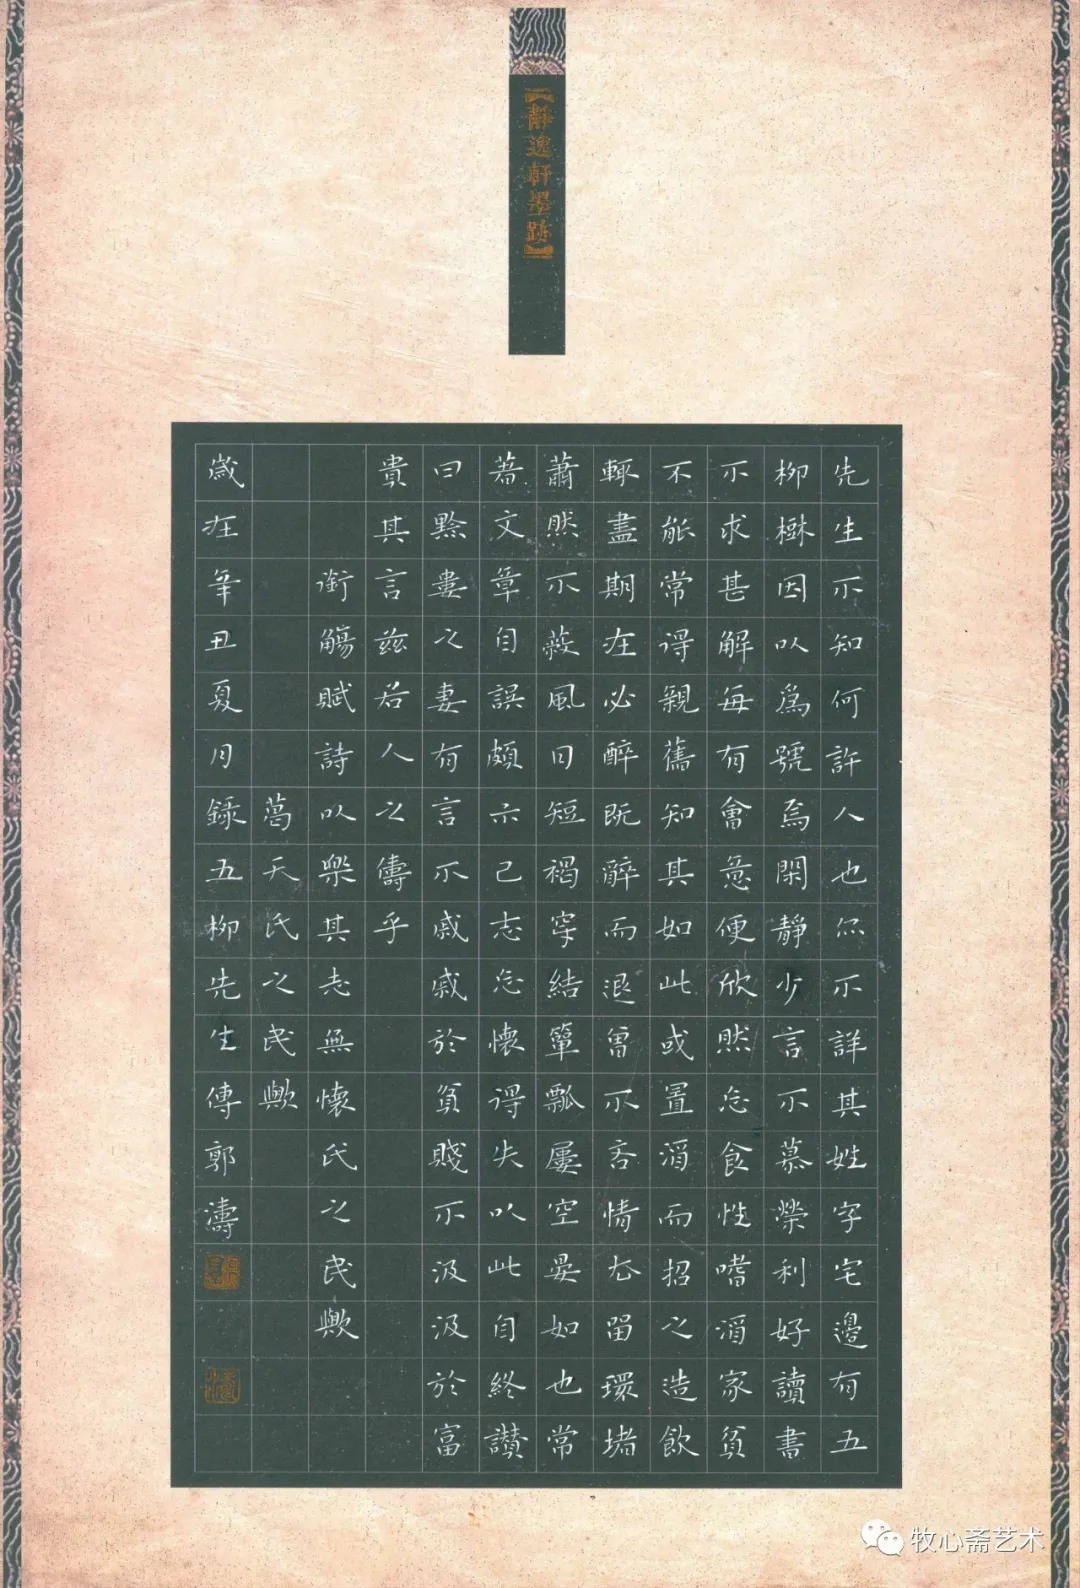 【靜逸軒墨跡】
先生不知何許人也亦不詳其姓字宅邊有五
柳樹因以為號焉閑靜少言不慕榮利好讀書
不求甚解每有會意便欣然忘食性嗜酒家貧
不能常得親舊知其如此或置酒而招之造飲
輒盡期在必醉既醉而退曾不吝情去留環堵
蕭然不蔽風日短褐穿結簞瓢屢空晏如也常
著文章自娛頗示己志忘懷得失以此自終讚
曰黔婁之妻有言不戚戚於貧賤不汲汲於富
貴其言茲若人之儔乎
銜觴賦詩以樂其志無懷氏之民歟
葛天氏之民歟
歲在辛丑夏月錄五柳先生傳郭濤
牧心斋艺术